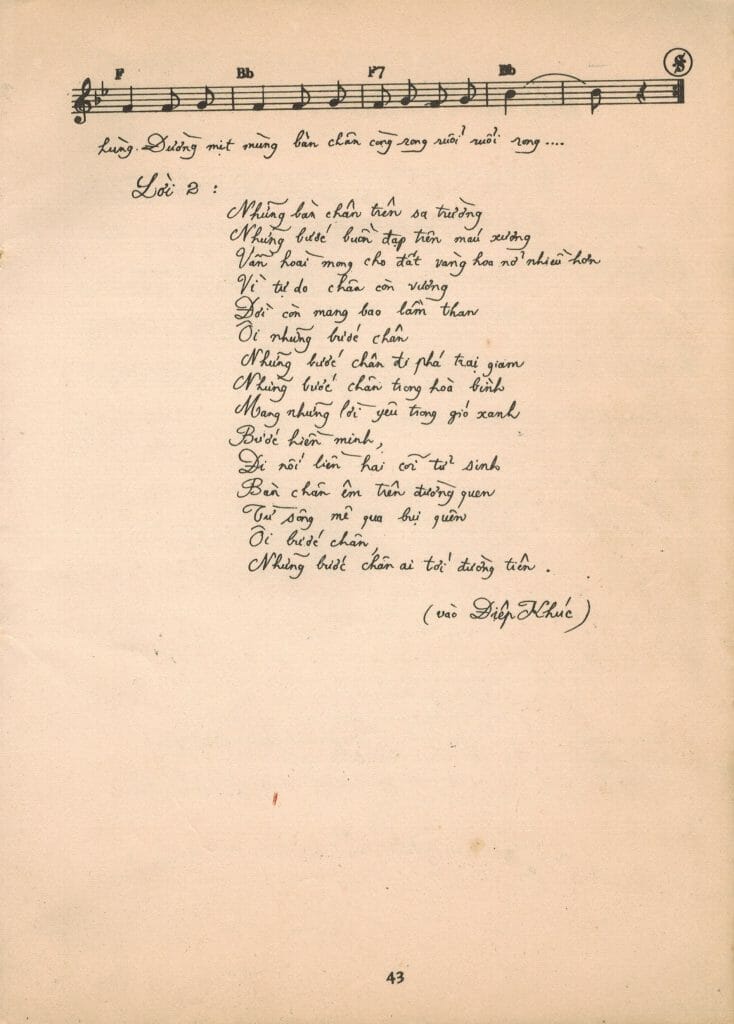 F Bb F7 Bb
hùng. Đường mịt mùng bàn chân còng rong ruổi ruổi rong ....
Lời 2 :
Những bàn chân trên sa trường
Những bước buồn đạp trên máu xương
Vẫn hoài mong cho đất vàng hoa nở nhiều hơn
Vì tự do chân còn vướng
Đời còn mang bao lầm than
Ôi những bước chân
Những bước chân đi phá trại giam
Những bước chân trong hoà bình
Mang những lời yêu trong gió xanh
Bước hiển minh,
Đi nối liền hai cõi tử sinh
Bàn chân êm trên đường quen
Từ sông mê qua bụi quên
Ôi bước chân
Những bước chân ai tới đường tiên .
(vào Điệp Khúc)
43